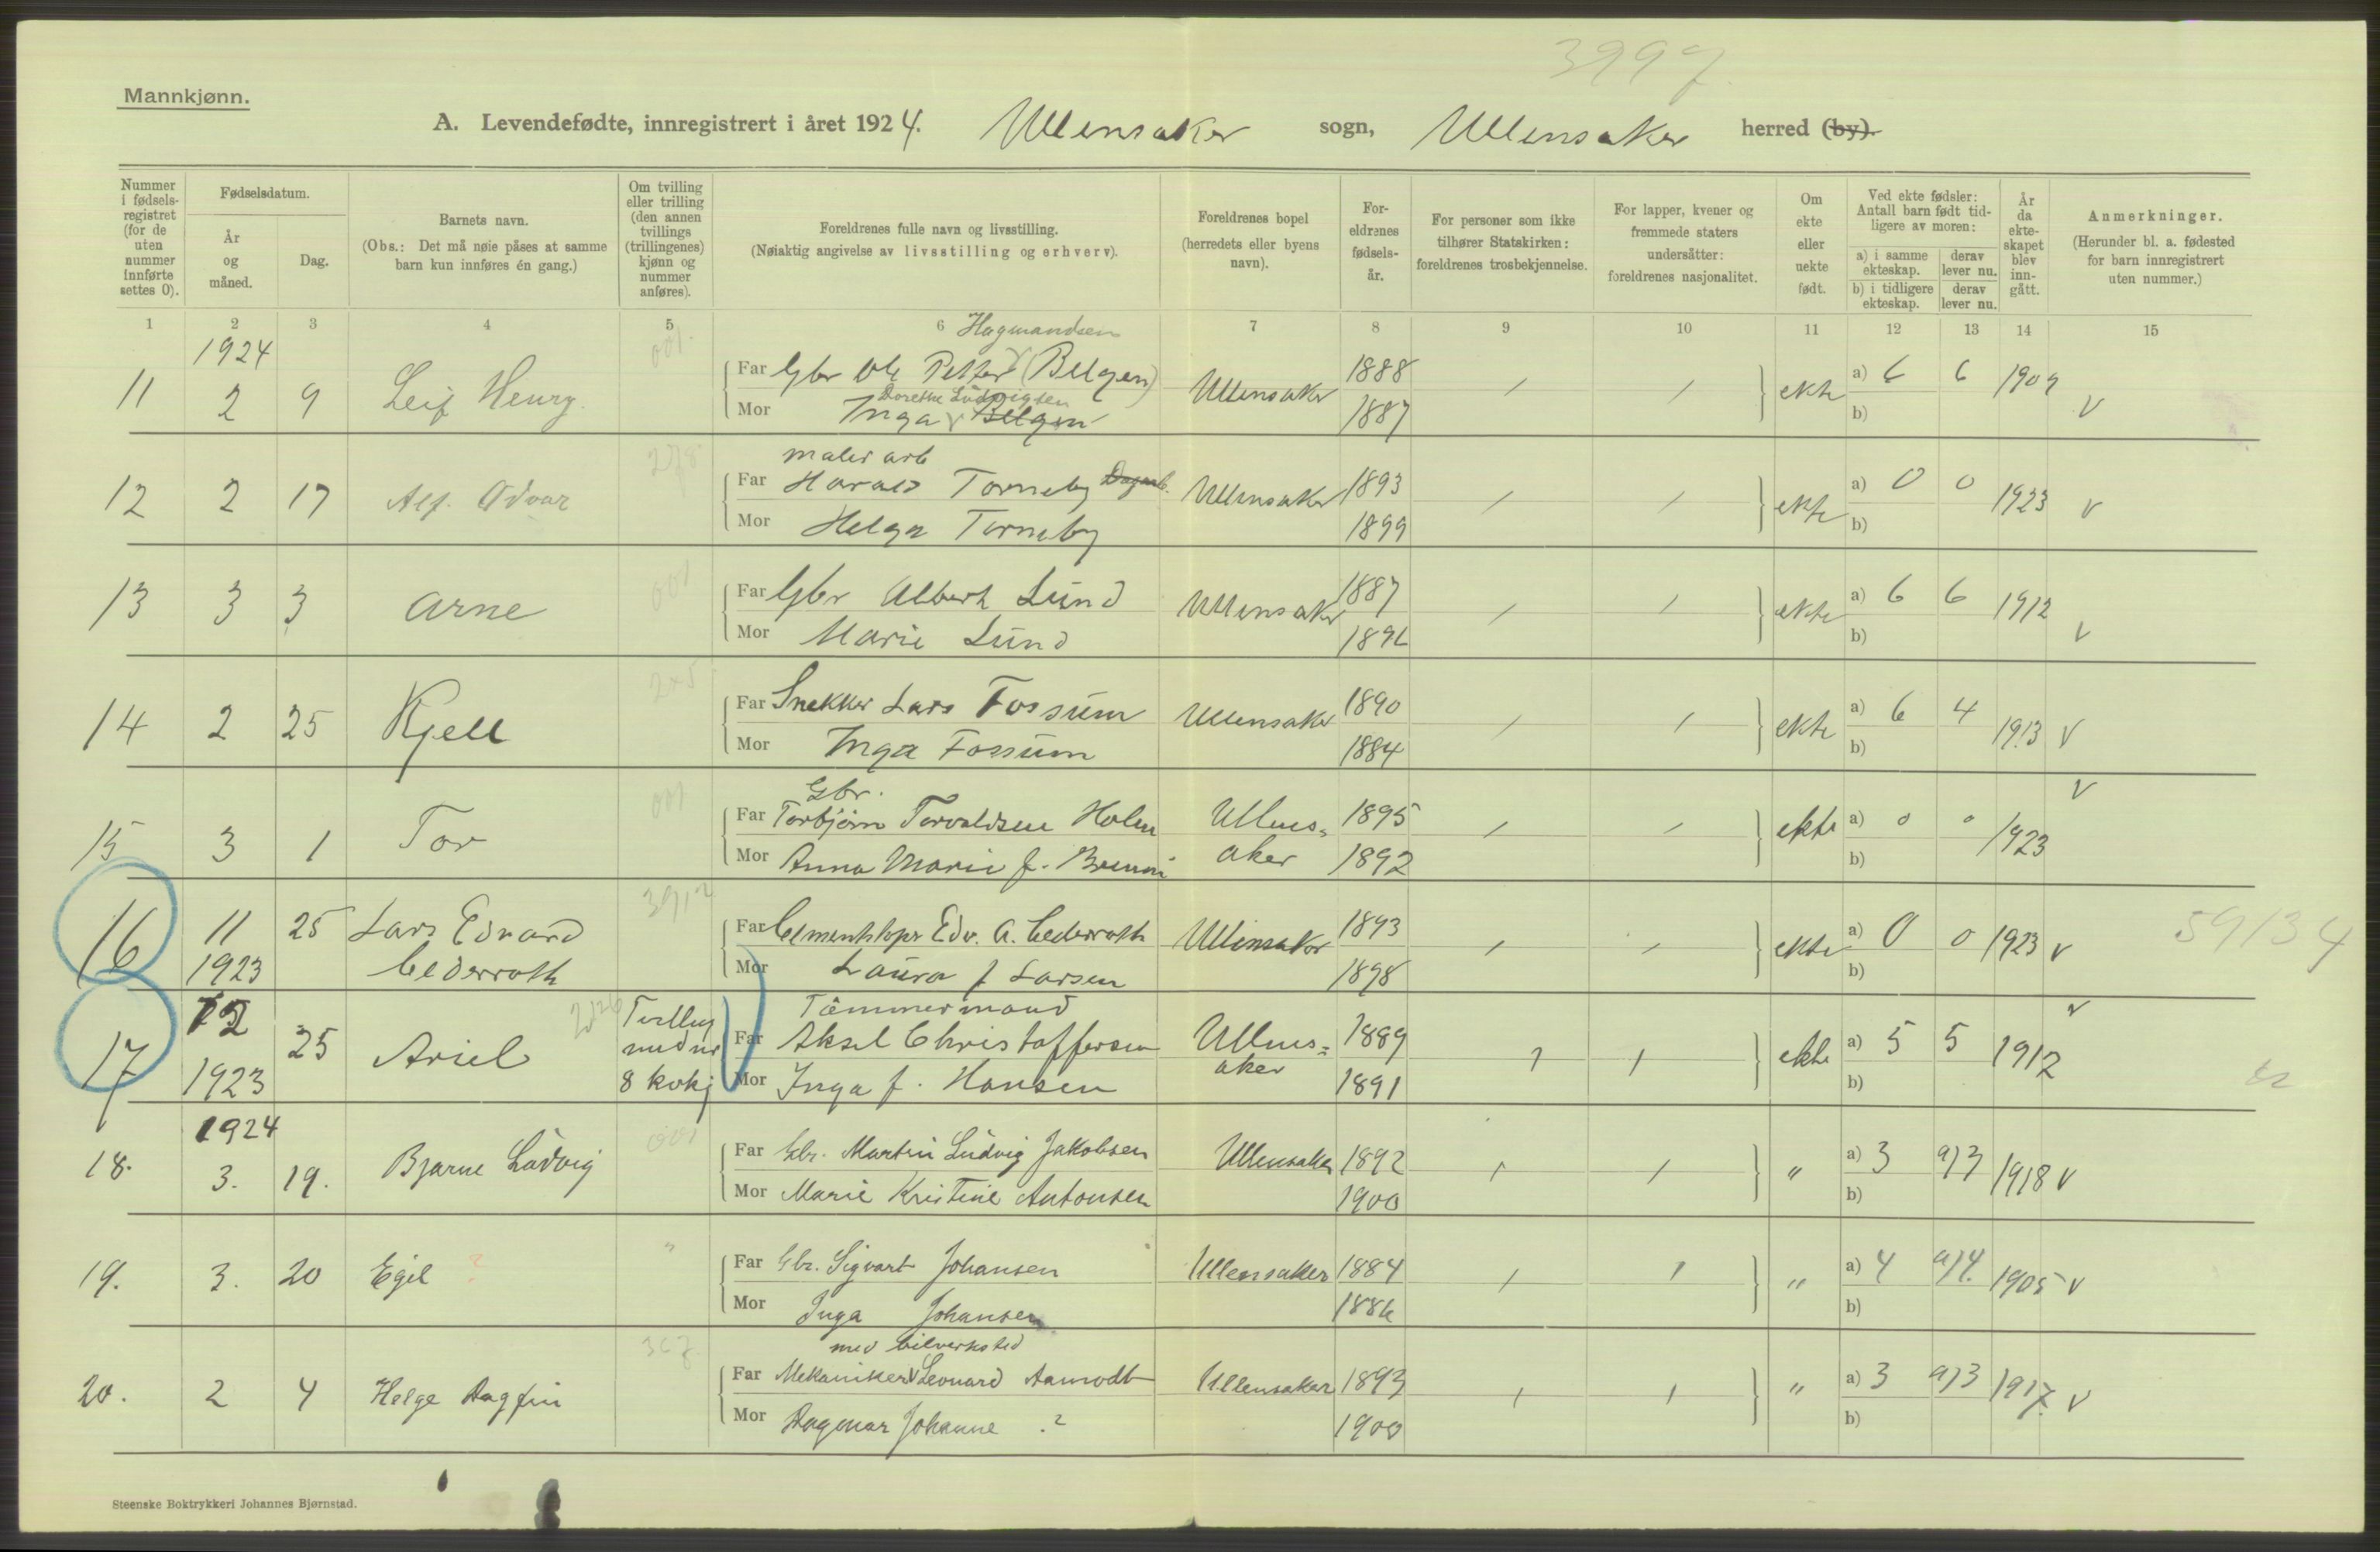 3997
Mannkjønn.
A. Levendefødte, innregistrert i året 1924. Ullensaker sogn, Ullensaker herred (by).
Nummer i fødsels-registret (for de uten nummer innførte settes 0).
Fødselsdatum.
År og måned.
Dag.
Barnets navn.
(Obs.: Det må nøie påses at samme barn kun innføres én gang.)
Om tvilling eller trilling (den annen tvillings (trillingenes) kjønn og nummer anføres).
Foreldrenes fulle navn og livsstilling.
(Nøiaktig angivelse av livsstilling og erhverv).
Foreldrenes bopel (herredets eller byens navn).
For-eldrenes fødsels-år.
For personer som ikke tilhører Statskirken: foreldrenes trosbekjennelse.
For lapper, kvener og fremmede staters undersåtter: foreldrenes nasjonalitet.
Om ekte eller uekte født.
Ved ekte fødsler: Antall barn født tid-ligere av moren:
a) i samme ekteskap. derav lever nu.
b) i tidligere ekteskap. derav lever nu.
År da ekte-skapet blev inn-gått.
Anmerkninger.
(Herunder bl. a. fødested for barn innregistrert uten nummer.)
1 2 3 4 5 6 7 8 9 10 11 12 13 14 15
1924
Hagmandsen
11 2 9 Leif Henry. 001. Far Gbr Ole Petter (Belgen) Ullensaker 1888 / / ekte a) 6 6 1909 v
Dorethe Ludvigsen
Mor Inga Belgen 1887 b)
maler arb
12 2 17 Alf. Odvar 278 Far Harald Torneby Dagarb. Ullensaker 1893 / / ekte a) 0 0 1923 v
Mor Helga Torneby 1899 b)
13 3 3 Arne 001 Far Gbr Albert Lund Ullensaker 1887 / / ekte a) 6 6 1912 v
Mor Marie Lund 1892 b)
14 2 25 Kjell 205 Far Snekker Lars Fossum Ullensaker 1890 / / ekte a) 6 4 1913 v
Mor Inga Fossum 1884 b)
Gbr.
15 3 1 Tor 001 Far Torbjørn Torvaldsen Holm Ullens=aker 1895 / / ekte a) 0 0 1923 v
Mor Anna Marie f. 1892 b)
16 11 1923 25 Lars Edvard Cederroth 3912 Far Cementstøper Edv. A. Cederroth Ullensaker 1893 / / ekte a) 0 0 1923 v 59134
Mor Laura f Larsen 1898 b)
Tømmermand
17 12 1923 25 Ariel Tvilling med nr 8 kvkj Far Aksel Christoffersen Ullens=aker 1889 / / ekte a) 5 5 1912 v
Mor Inga f. Hansen 1891 b)
1924
18. 3. 19. Bjarne Ludvig 001 Far Gbr. Martin Ludvig Jakobsen Ullensaker 1892 / / " a) 3 a)3 1918 v
Mor Marie Kristine Antonsen 1900 b)
19. 3. 20 Egil ? " Far Gbr. Sigvart Johansen Ullensaker 1884 / / " a) 4 a)4. 1905 v
Mor Inga Johansen 1886 b)
med bilverksted
20. 2 4 Helge Dagfin 307 Far Mekaniker Leonard Aamodt Ullensaker 1893 / / " a) 3 a)3 1917. v
Mor Dagmar Johanne .? 1900 b)
Steenske Boktrykkeri Johannes Bjørnstad.